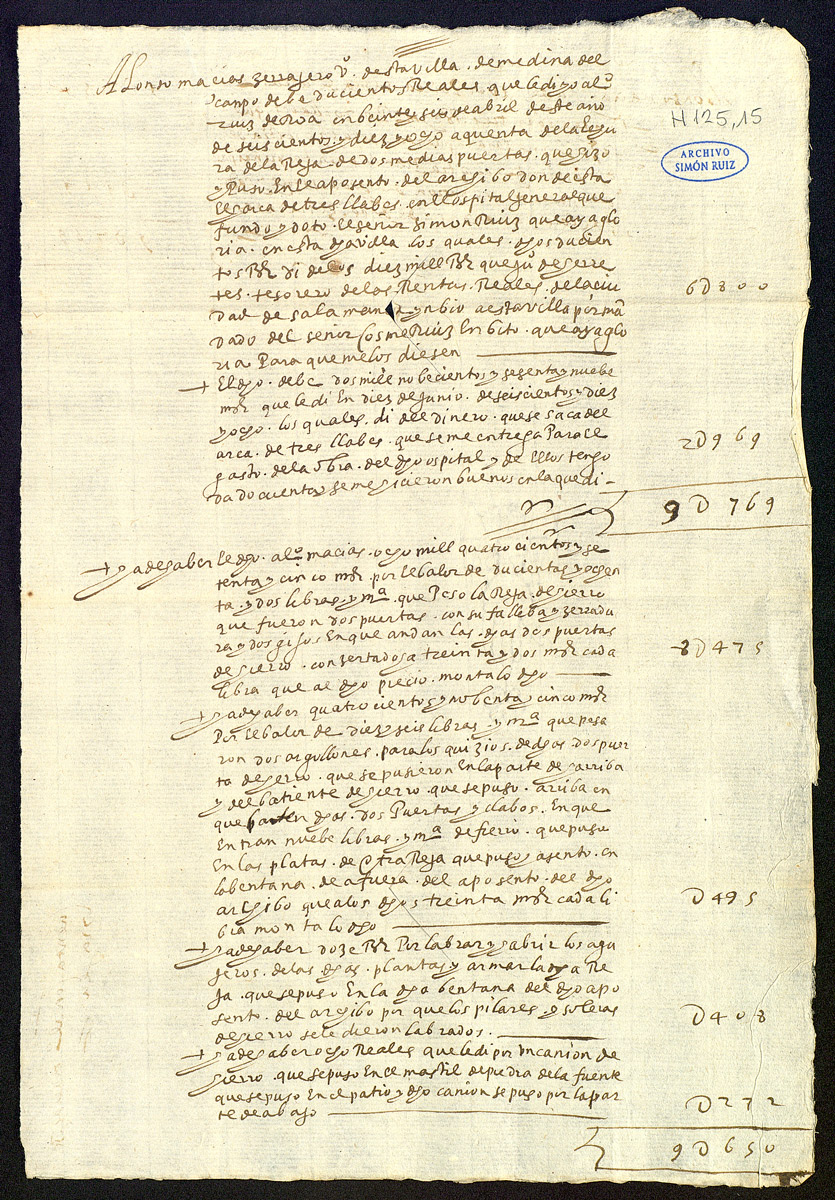 Alonso macias zerrajero vº. destavilla. demedina del
campo debe ducientos Reales. que le dio alº
ruiz de Roa en beinte y seis de abril deste año
de seiscientos. y diez y ocho a quenta de la echu
ra de la Reja de dos medias puertas. que hizo
y Puso. En el aposento. del archibo donde esta
el arca de tres llabes. en el ospital general que
fundo y doto. el señor simon Ruiz que aya glo
ria. en esta dha villa los quales. dhos ducien
tos Rs di de los diez mill Rs que juº de
tes. tesorero de las Rentas. Reales. de la ciu
dad de salamanca ynbio a esta villa por ma
dado del señor Cosme Ruiz Enbito. que aya glo
ria Para que me los diesen
6D800
El dho. debe dos mill nobecientos y sesenta y nuebe
mrs que le di En diez de junio. de seiscientos y diez
y ocho. los quales. di del dinero. que se saca del
arca. de tres llabes. que se me entrega Para el
gasto. de la obra. del dho ospital y de ellos tengo
dado cuenta y se me hicieron buenos en la que di
2D969
9D769
y a de haber el dho. alº macias. ocho mill quatrocientos y se
tenta y cinco mrs por el balor de ducientas y ochen
ta. y dos libras. y mª que Peso la Reja. de hierro
que fueron dos puertas. con su falleba y zerradu
ra y dos En que andan las. dhas dos puertas
de hierro. conzertados a treinta y dos mrs cada
libra que al dho precio. monta lo dho
8D475
y a de haber quatrocientos y nobenta y cinco mrs
Por el balor de diez y seis libras. y mª que pesa
ron dos argollones. para los quizios. de dhas dos puer
tas de hierro. que se pusieron En la parte de arriba
y del batiente de hierro. que se puso. arriba en
que baten dhas. dos Puertas y clabos. En que
Entran nuebe libras. y mª de fierro. que puso
En las platas. de otra Reja que puso y asento. en
la bentana. de afuera. del aposento. del dho
archibo que a los dhos treinta mrs cada li
bra monta lo dho
D495
y a de haber doze Rs Por labrar y abrir los agu
jeros. de las dhas. plantas y armar la dha Re
ja. que se puso En la dha bentana del dho apo
sento. del archibo por que los pilares. y soleras
de hierro se le dieron labrados.
D408
y a de haber ocho Reales que le di por un cañon de
hierro. que se puso En el mastil de piedra de la fuente
que se puso En el patio y dho cañon se puso por la par
te de abajo
D272
9D650
H 125,15
ARCHIVO
SIMÓN RUIZ